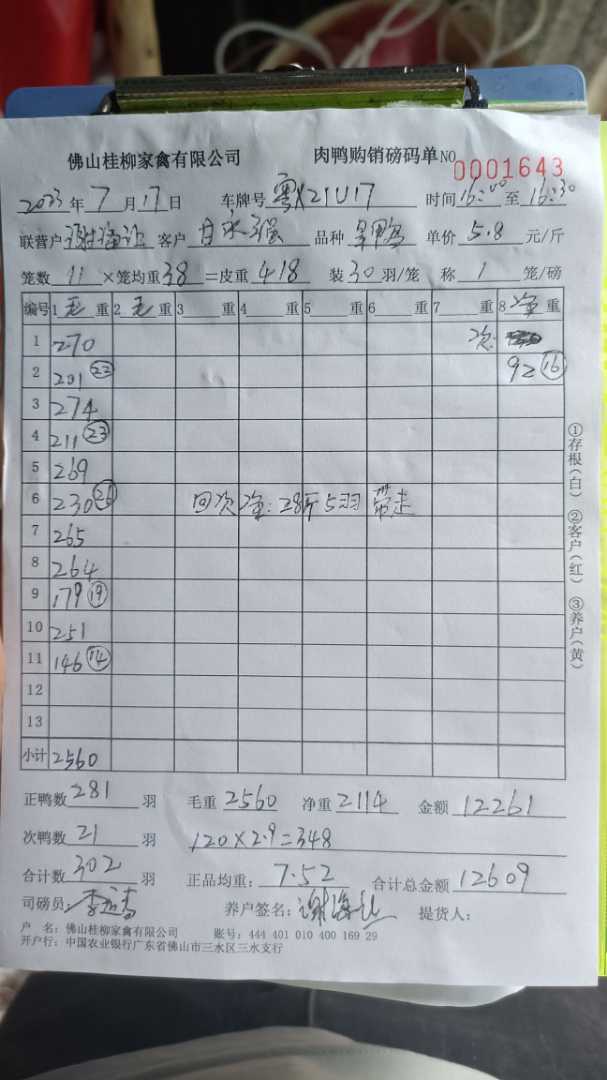 佛山桂柳家禽有限公司 肉鸭购销磅码单 NO 0001643
2023年 7 月 17 日 车牌号 粤X21U17 时间 16:00 至 16:30
联营户 谢海 客户 甘永强 品种 鸭 单价 5.8 元/斤
笼数 11 ×笼均重 38 =皮重 418 装 30 羽/笼 称 1 笼/磅
编号 1 毛 重 2 毛 重 3 重 4 重 5 重 6 重 7 重 8 净 重
1 270 次:
2 201 (22) 92 (16)
3 274
4 211 (23)
5 269
6 230 (26) 回次净:28斤5羽 带走
7 265
8 264
9 179 (19)
10 251
11 146 (14)
12
13
小计 2560
①存根(白) ②客户(红) ③养户(黄)
正鸭数 281 羽 毛重 2560 净重 2114 金额 12261
次鸭数 21 羽 120×2.9=348
合计数 302 羽 正品均重: 7.52 合计总金额 12609
司磅员: 养户签名: 谢海 提货人:
户 名: 佛山桂柳家禽有限公司 账号: 444 401 010 400 169 29
开户行: 中国农业银行广东省佛山市三水区三水支行